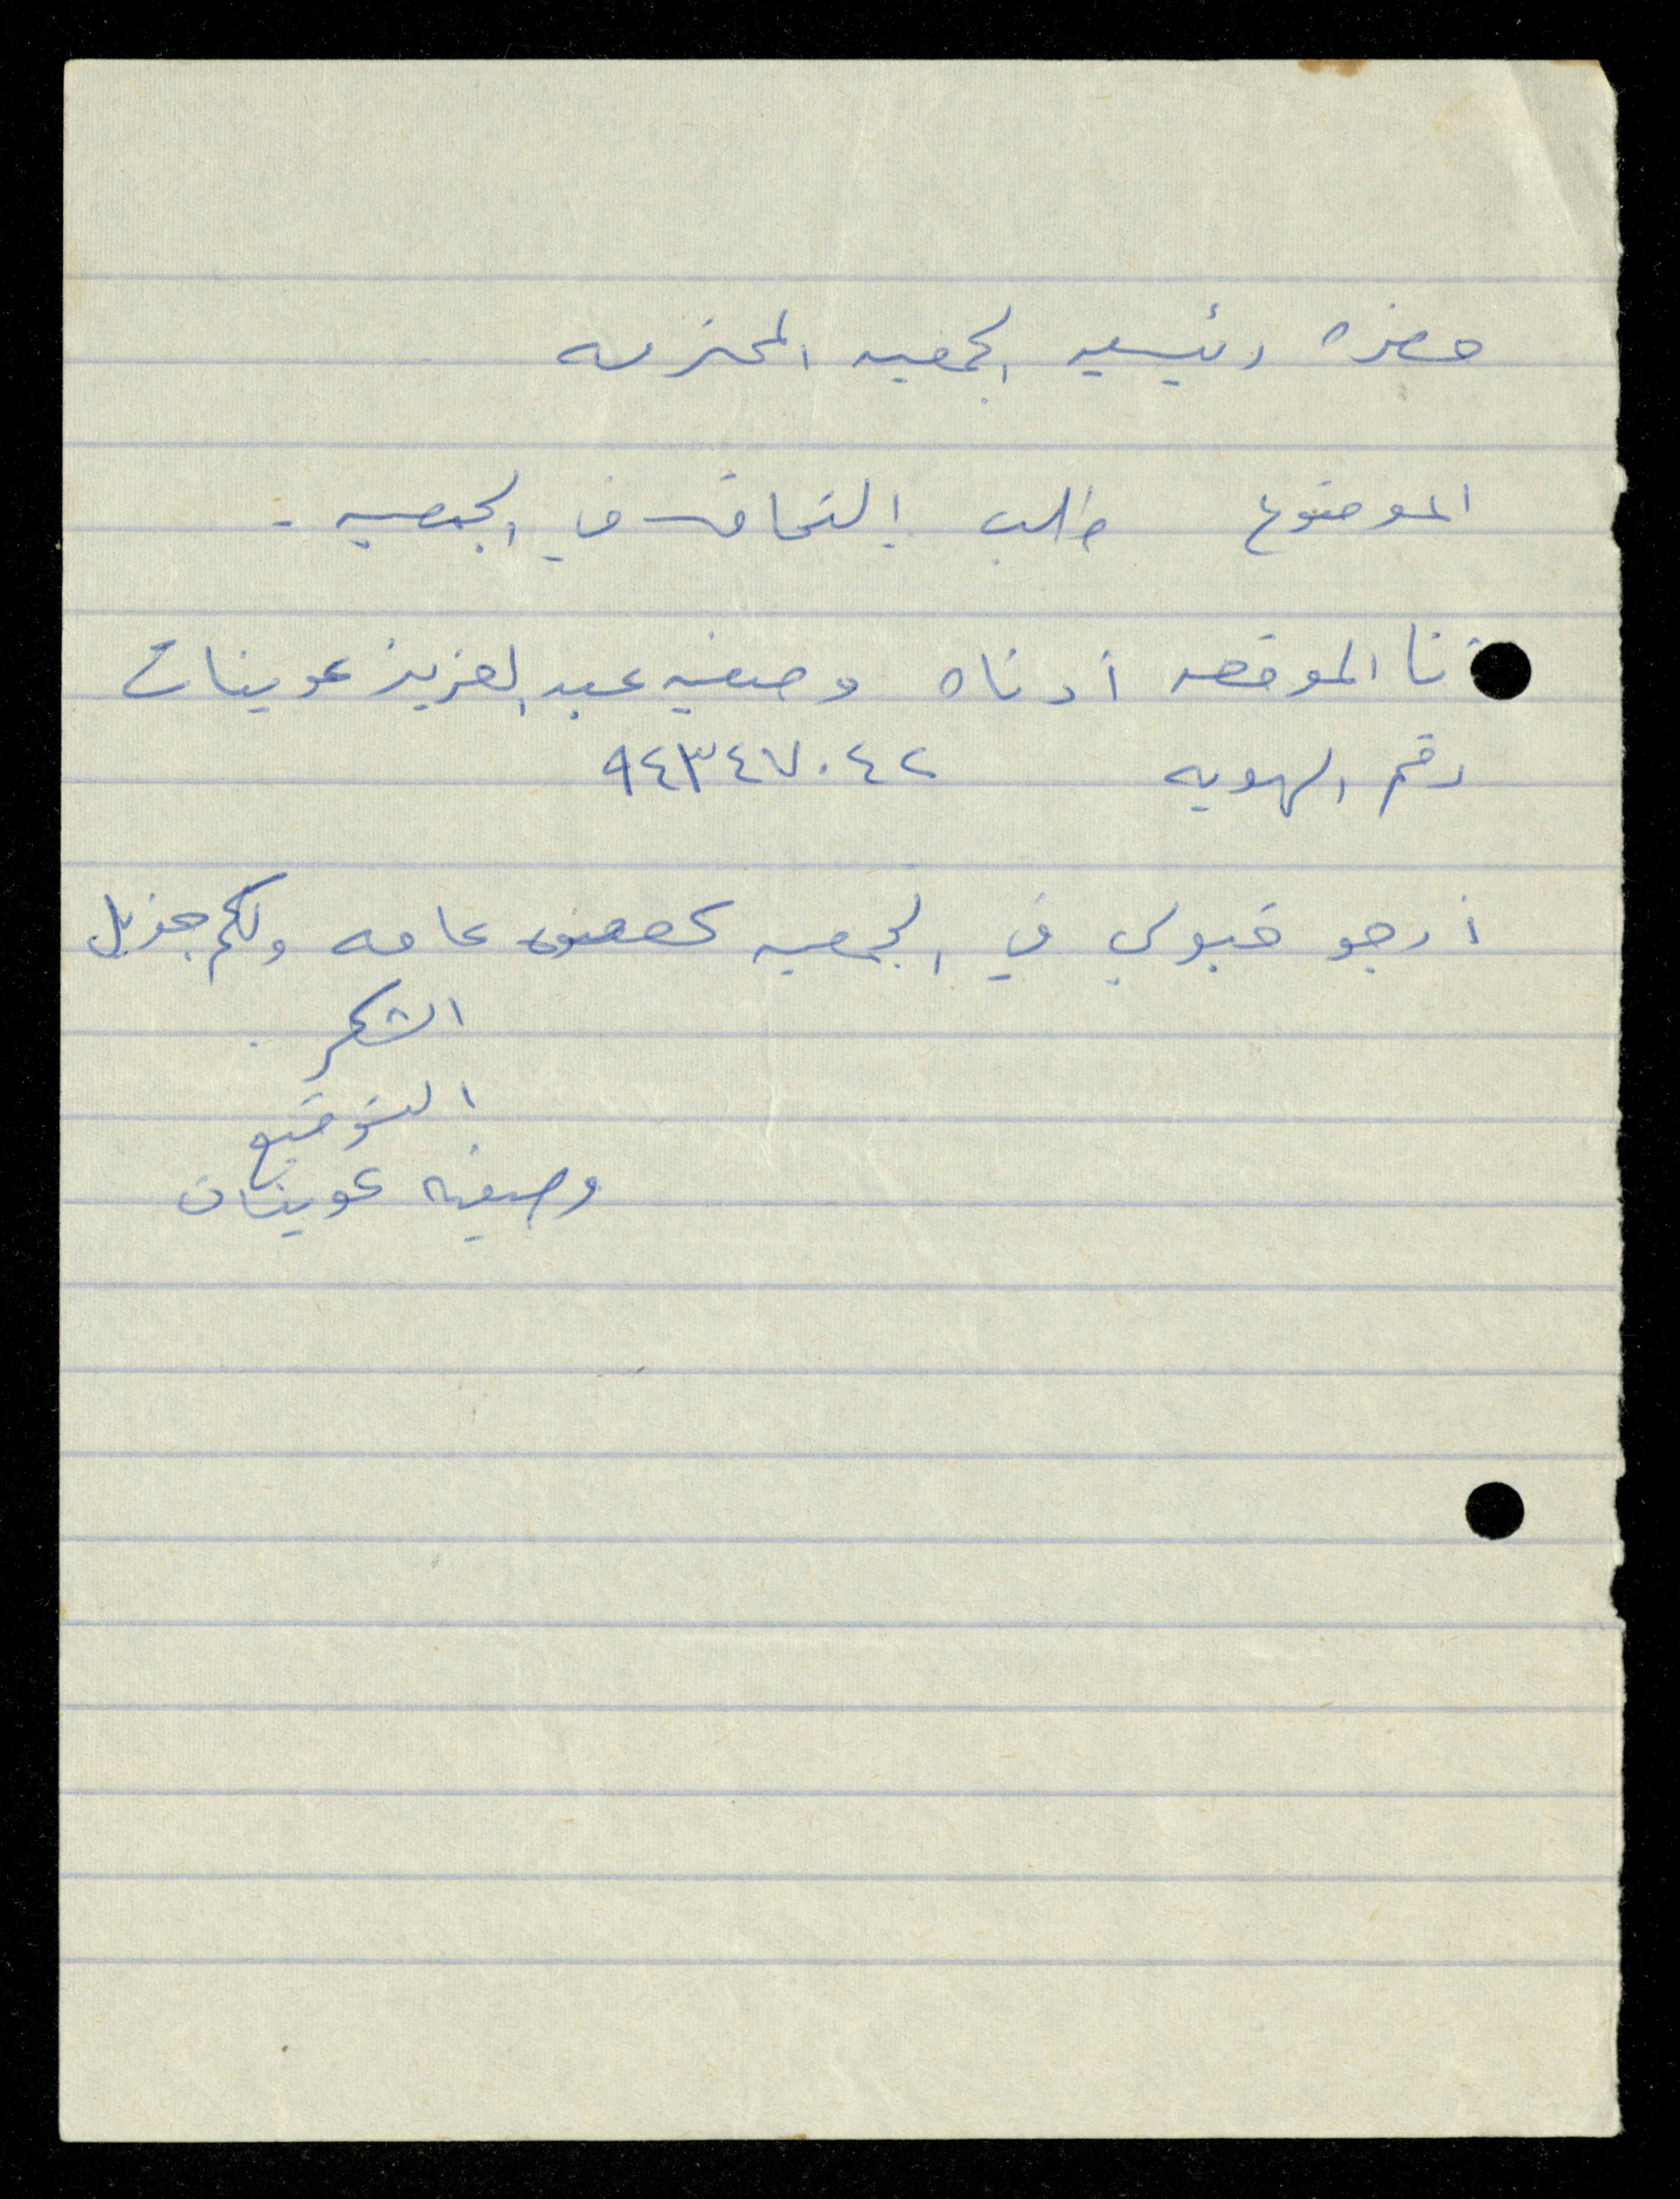 حضره رئيسه الجمعيه المحترمه
الموضوع طلب إلتحاق في الجمعيه .
أنا الموقعه أدناه وصفيه عبد العزيز عوينات
رقم الهويه ٩٤٣٤٧٠٤٢
أرجو قبولي في الجمعيه كعضوه عامه ولكم جزيل
الشكر .
التوقيع
وصفيه عوينات